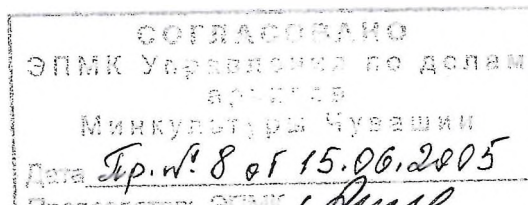 СОГЛАСОВАНО
ЭПМК Управления по делам
архивов
Минкультуры Чувашии
Дата Пр. № 8 от 15.06.2005
Председатель ЭПМК